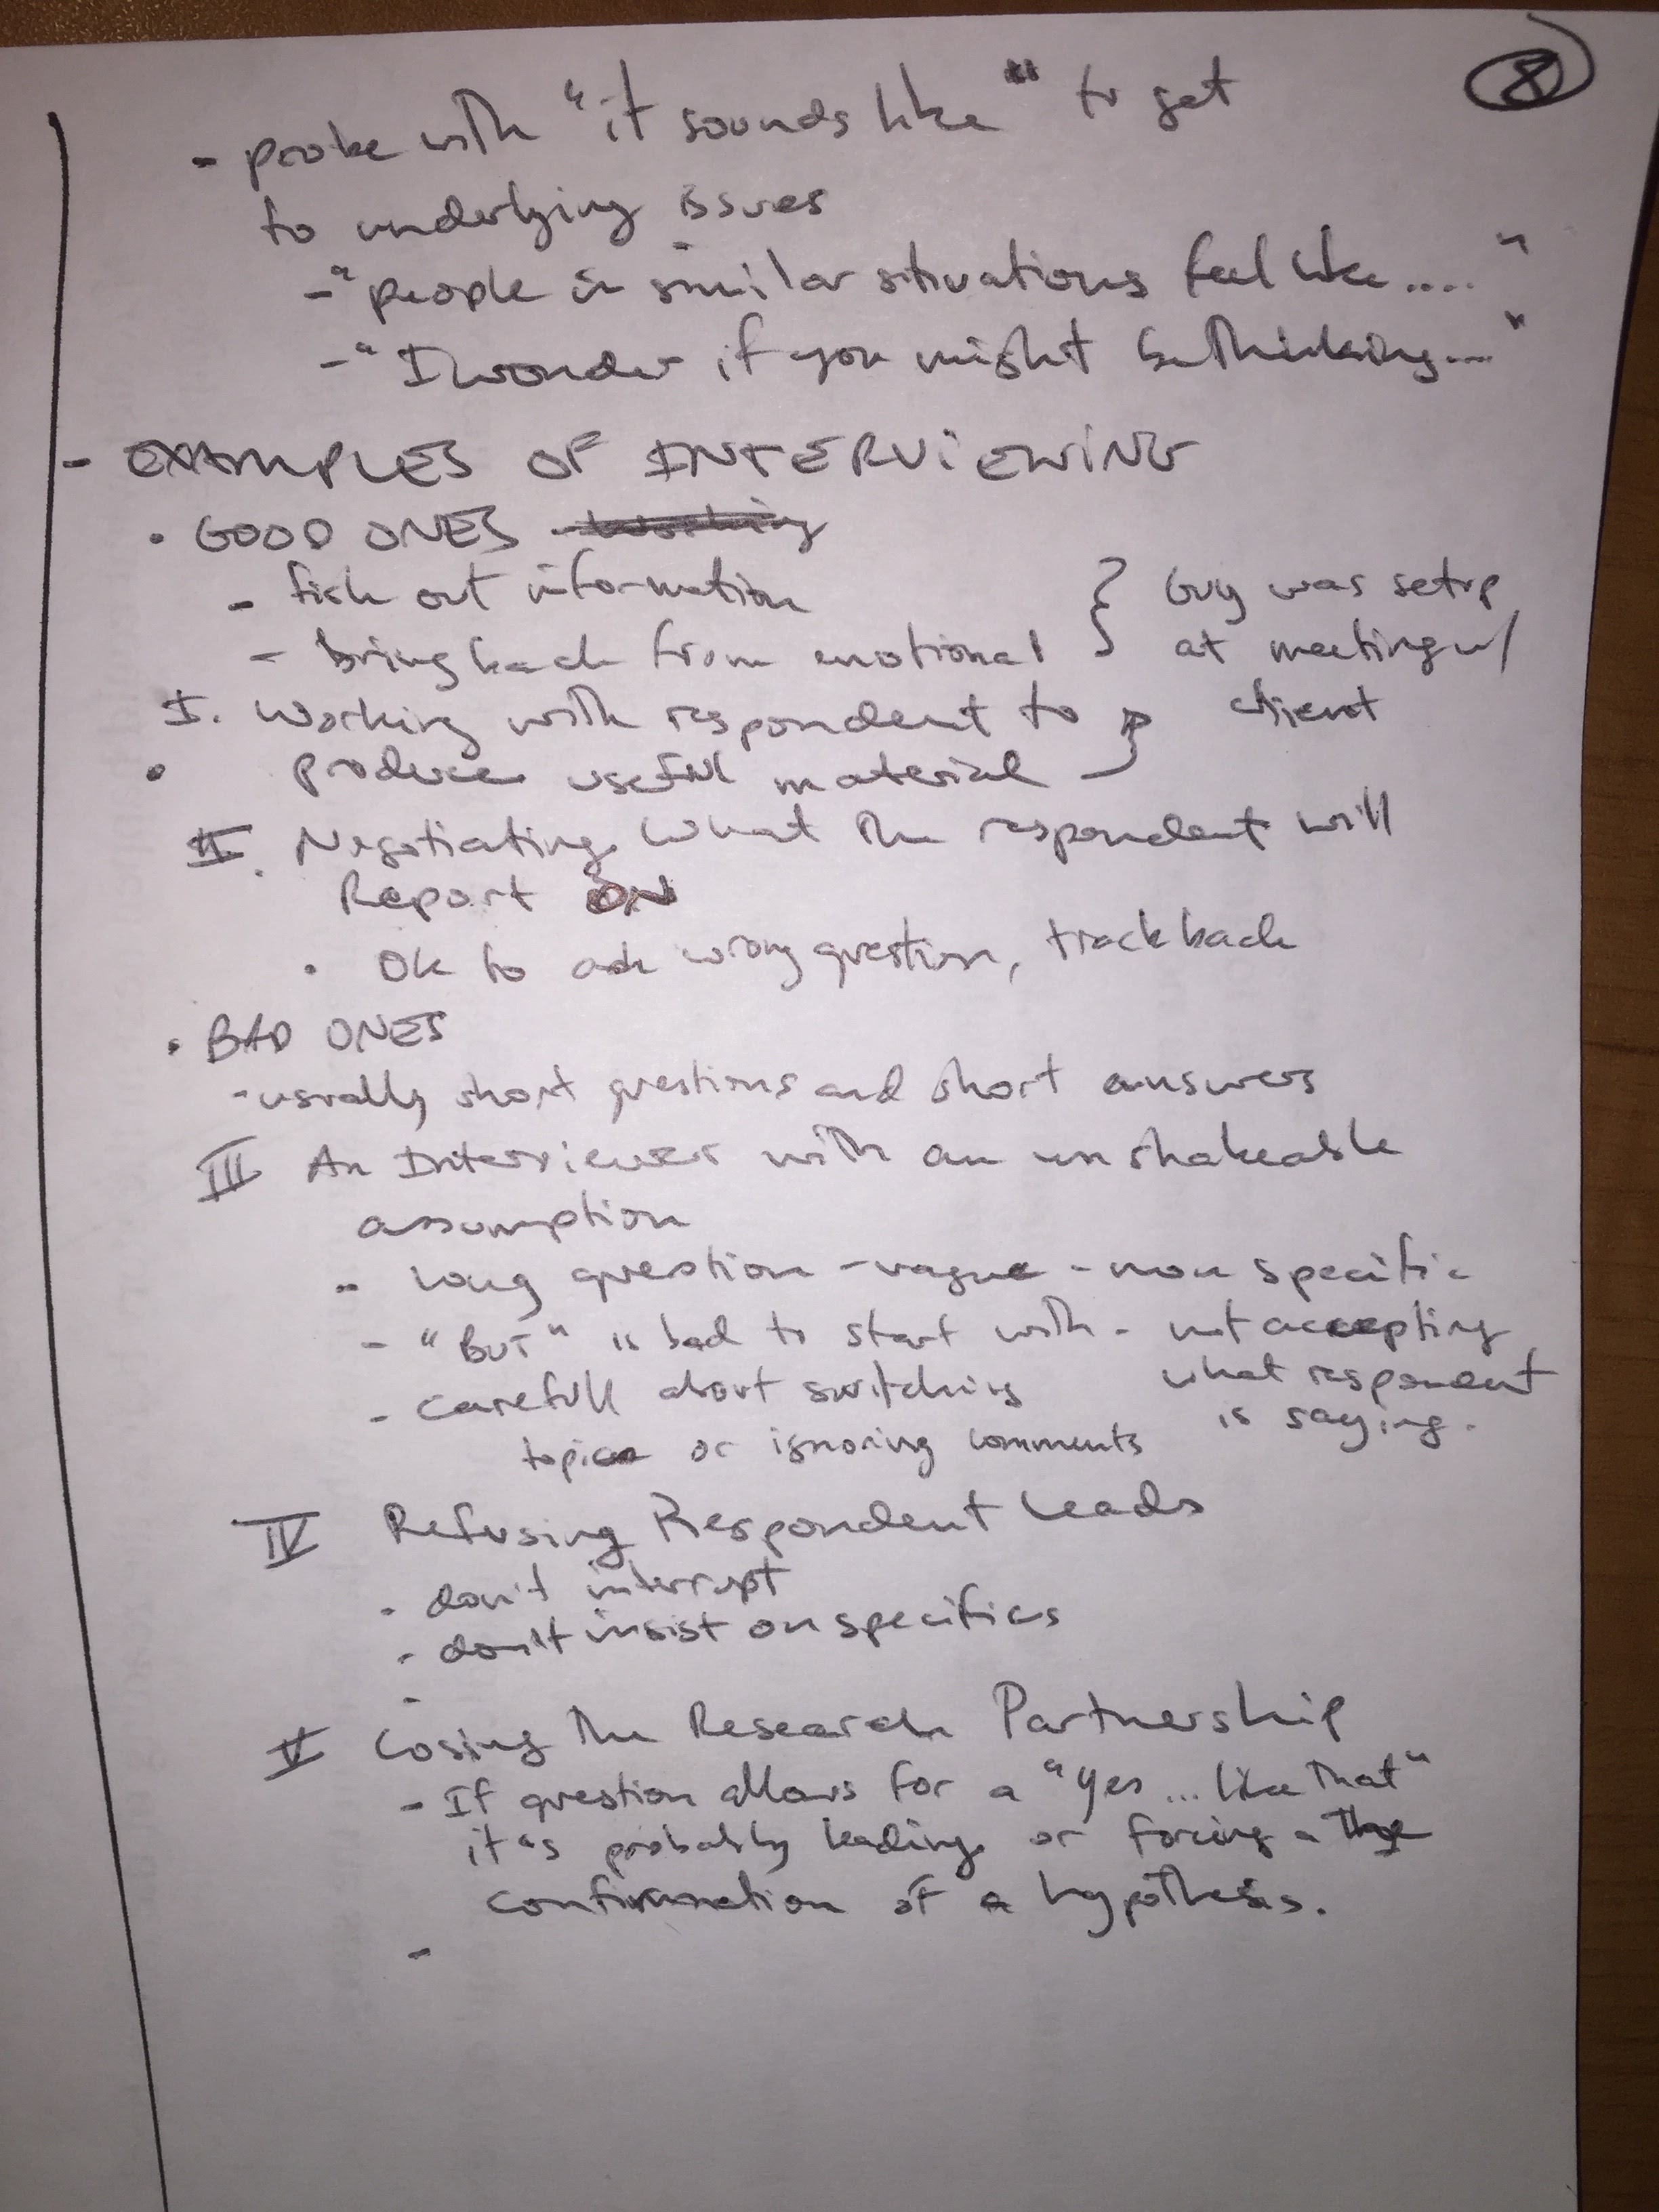 8
- probe with "it sounds like" to get
to underlying issues
- "people in similar situations feel like...."
- "I wonder if you might be thinking...."
- EXAMPLES OF INTERVIEWING
• GOOD ONES
- fish out information
- bring back from emotional
} Guy was setup
at meeting w/
client
I. Working with respondent to
• produce useful material
II. Negotiating what the respondent will
Report ON
• Ok to ask wrong question, track back
• BAD ONES
- usually short questions and short answers
III An Interviewer with an unshakeable
assumption
- long question - vague - non specific
- "BUT" is bad to start with - not accepting
what respondent
is saying.
- carefull about switching
topics or ignoring comments
IV Refusing Respondent Leads
- don't interrupt
- don't insist on specifics
-
V Losing the Research Partnership
- If question allows for a "yes... like that"
it's probably leading or forcing a
confirmation of a hypothesis.
-